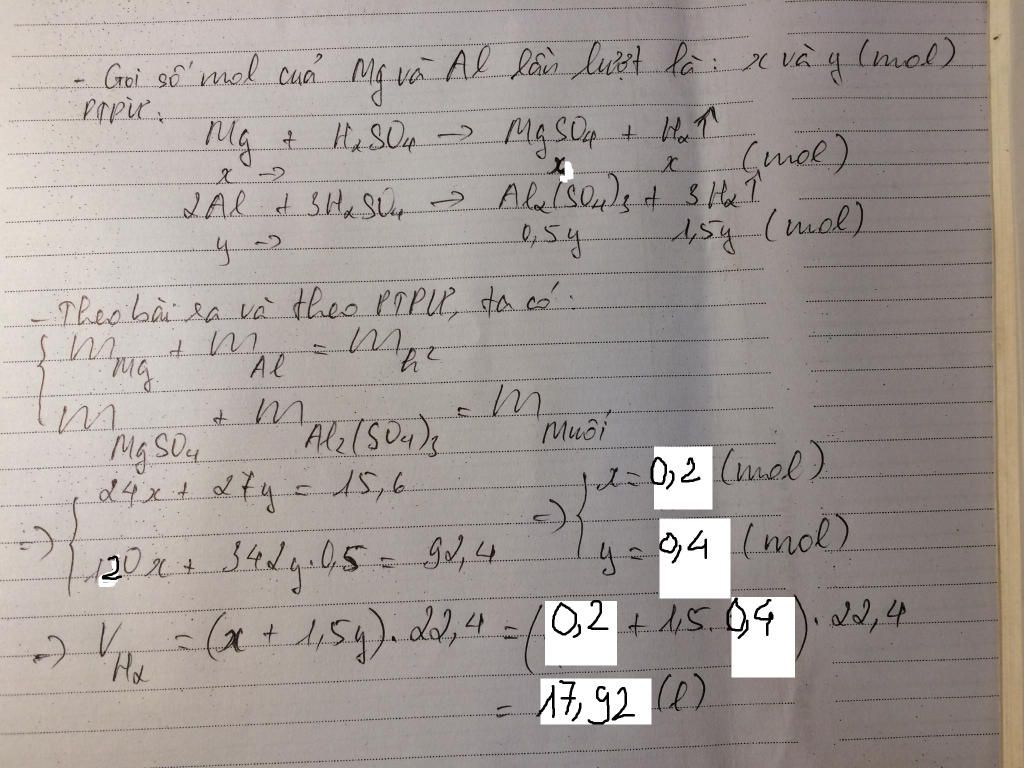 - Gọi số mol của Mg và Al lần lượt là: x và y (mol)
PTPƯ:
Mg + H₂SO₄ → MgSO₄ + H₂↑
x → x x (mol)
2Al + 3H₂SO₄ → Al₂(SO₄)₃ + 3H₂↑
y → 0,5y 1,5y (mol)
- Theo bài ra và theo PTPƯ, ta có:
{ m Mg + m Al = m h²
m MgSO₄ + m Al₂(SO₄)₃ = m Muối
=> { 24x + 27y = 15,6 => { x = 0,2 (mol)
120x + 342y.0,5 = 92,4 y = 0,4 (mol)
=> V H₂ = (x + 1,5y).22,4 = (0,2 + 1,5.0,4).22,4
= 17,92 (l)